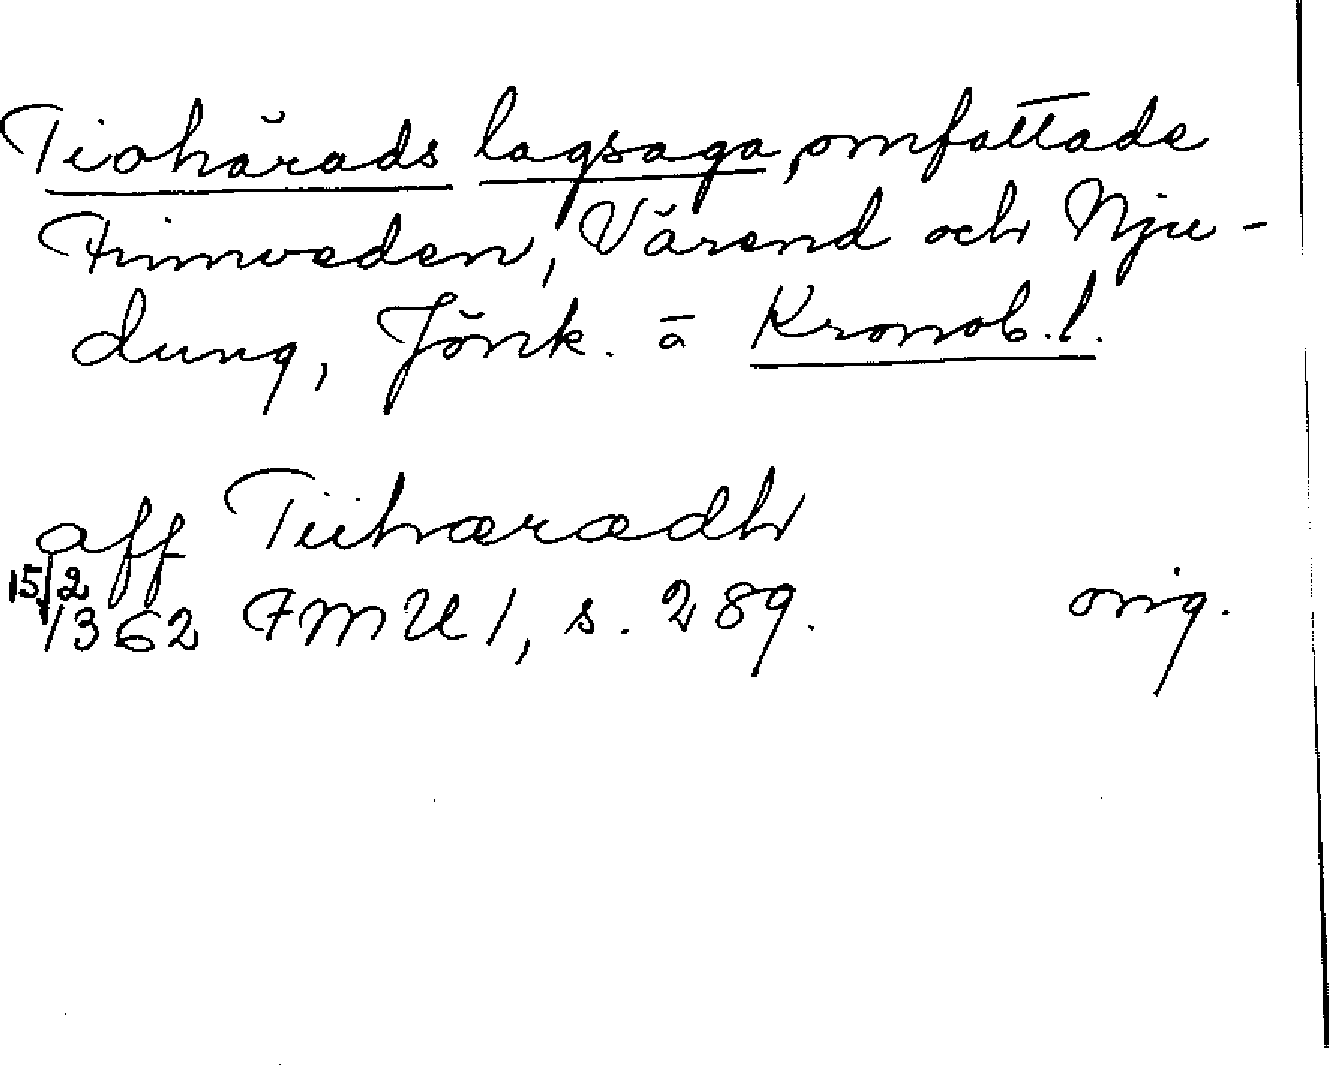 Tiohärads lagsaga, omfattade
Finnveden, Värend och Nju-
dung, Jönk. ā Kronob. l.
aff Tiihæradh
15/2
1362 FMU 1, s. 289. orig.